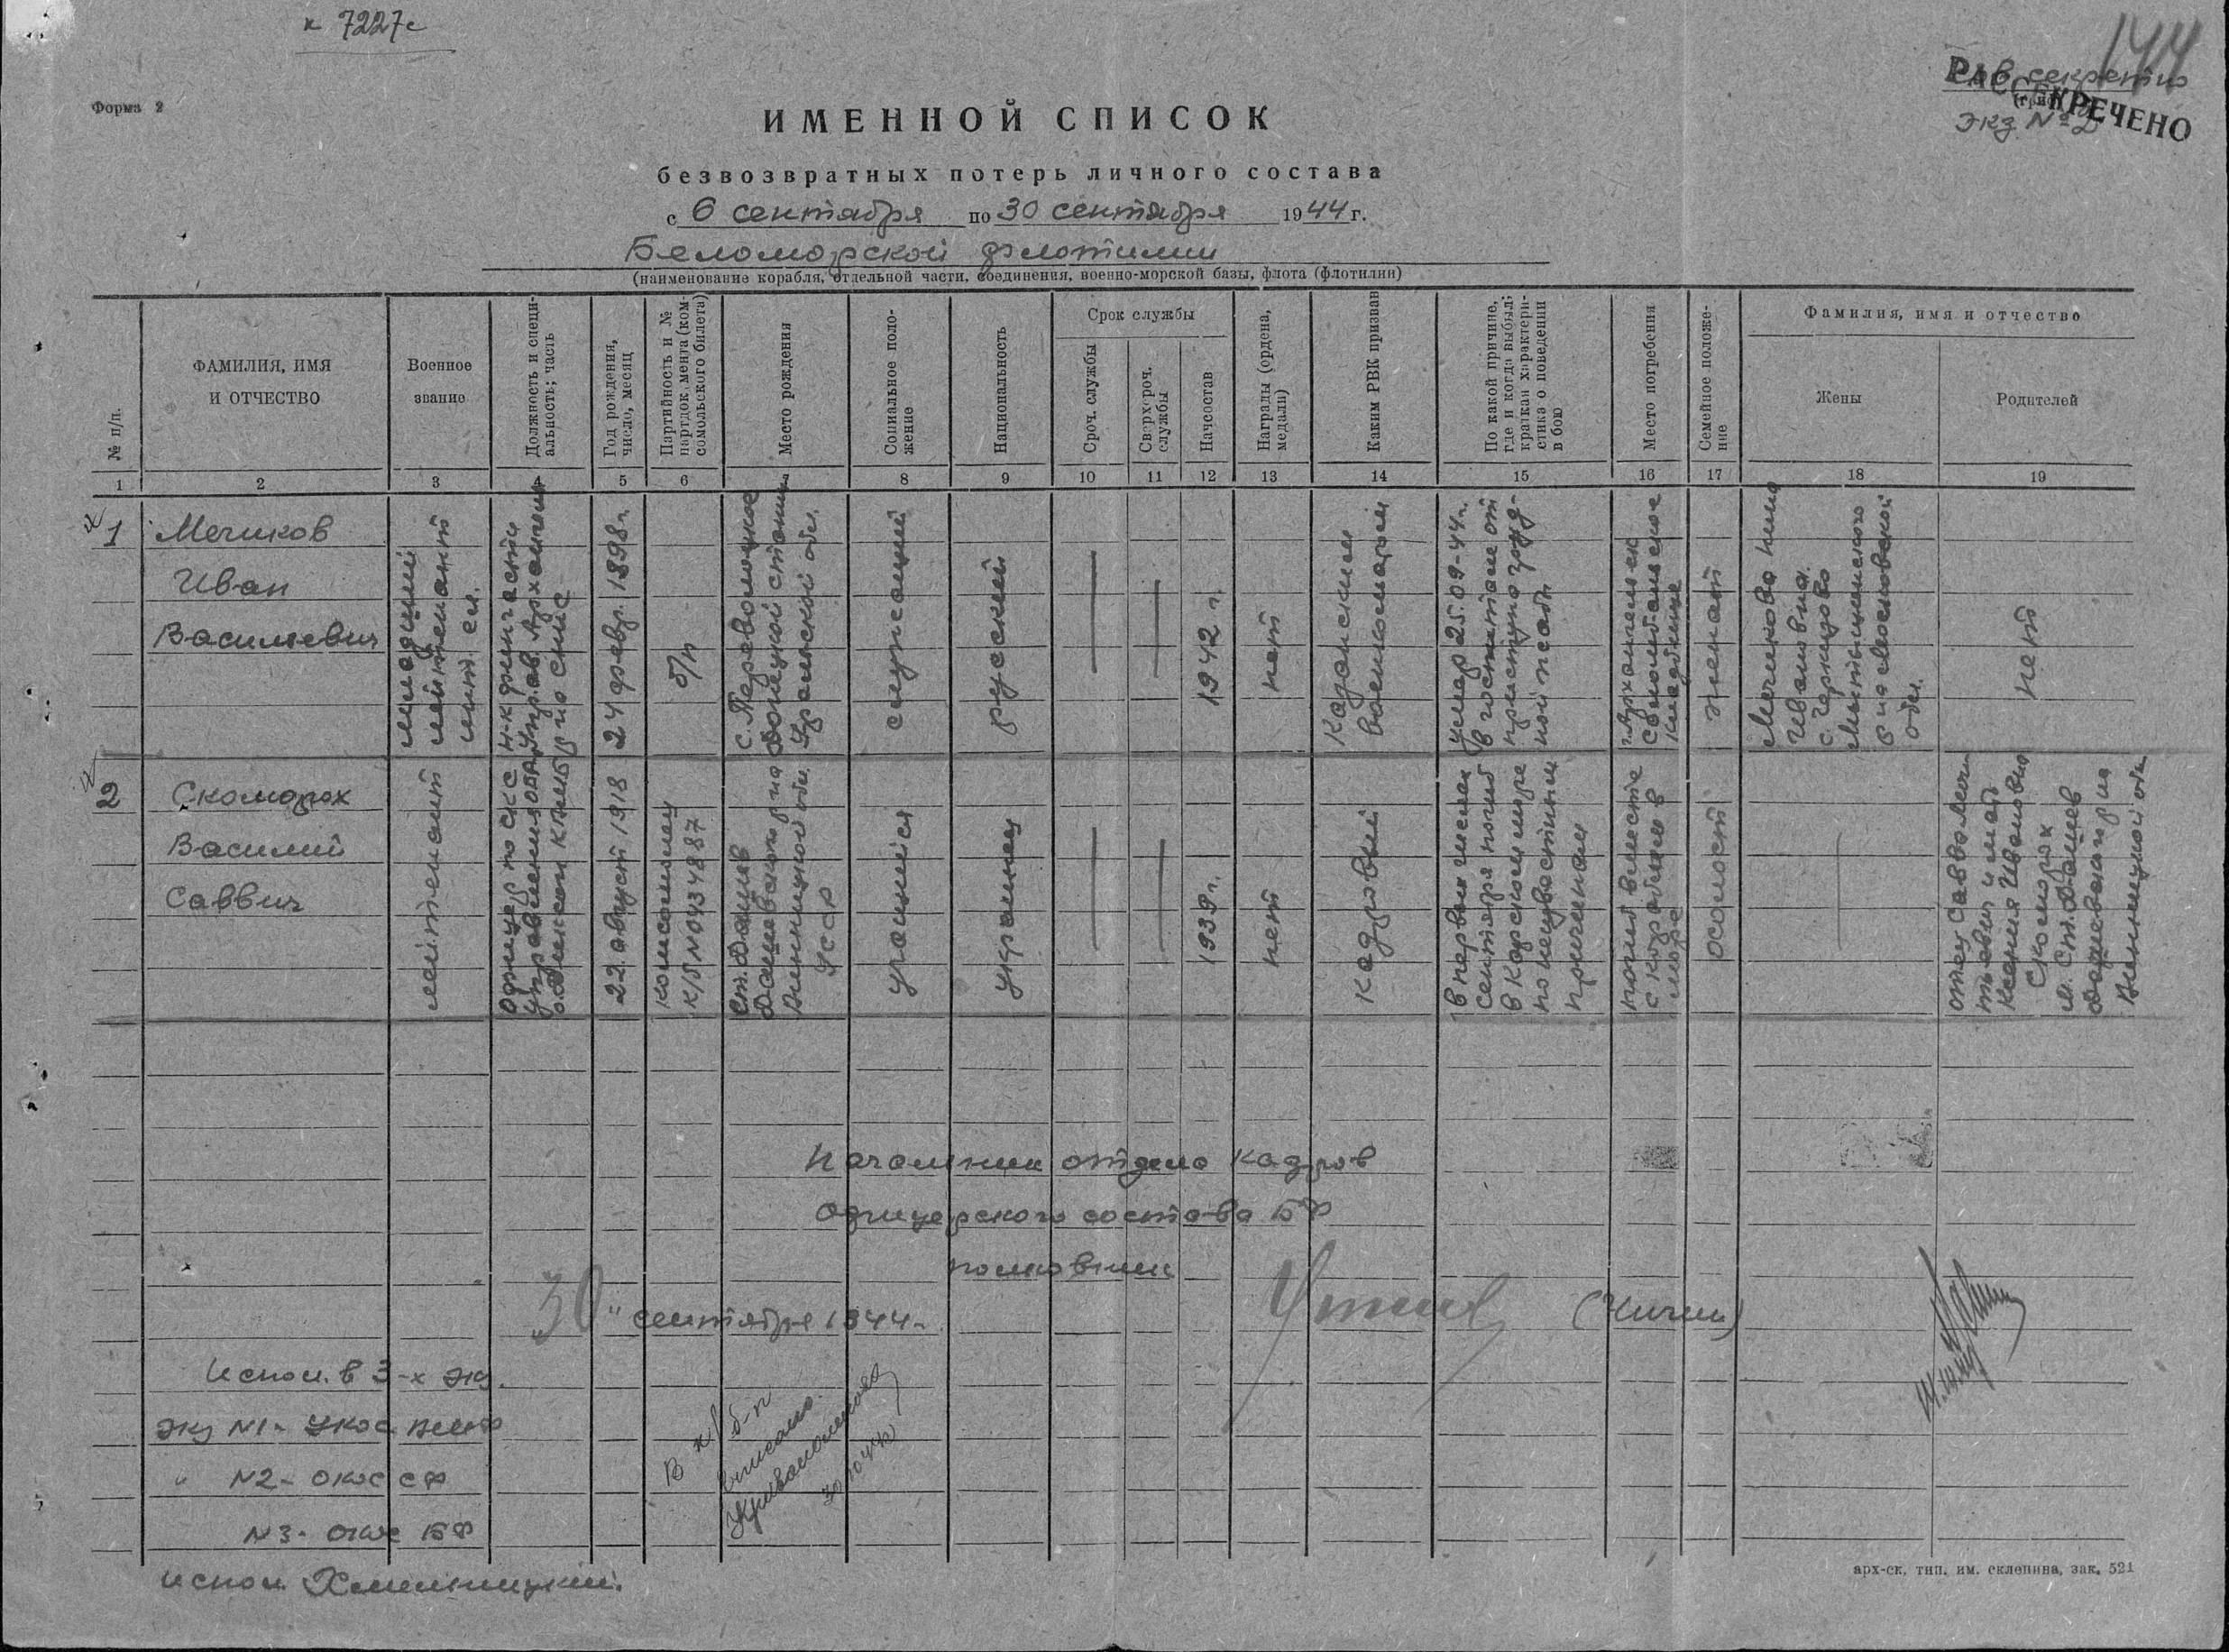 к 7227с
144
Сов. секретно
РАССЕКРЕЧЕНО
Экз. № 2
Форма 2
ИМЕННОЙ СПИСОК
безвозвратных потерь личного состава
с 6 сентября по 30 сентября 1944 г.
Беломорской флотилии
(наименование корабля, отдельной части, соединения, военно-морской базы, флота (флотилии)
№ п/п.
ФАМИЛИЯ, ИМЯ
И ОТЧЕСТВО
Военное
звание
Должность и специ-
альность; часть
Год рождения,
число, месяц
Партийность и №
партдокумента (ком-
сомольского билета)
Место рождения
Социальное поло-
жение
Национальность
Срок службы
Сроч. службы
Сверхсроч.
службы
Начсостав
Награды (ордена,
медали)
Каким РВК призван
По какой причине,
где и когда выбыл;
краткая характери-
стика о поведении
в бою
Место погребения
Семейное положе-
ние
Фамилия, имя и отчество
Жены
Родителей
1 2 3 4 5 6 7 8 9 10 11 12 13 14 15 16 17 18 19
1
Мечиков
Иван
Васильевич
младший
лейтенант
инт. сл.
н-к финчасти
Упр. ав. Арханг.
24 февр. 1898 г.
б/п
с. Переволоцкое
служащий
русский
1942 г.
нет
военкоматом
умер 25.09-44 г.
в госпитале от
г. Архангельск
кладбище
женат
Мечикова Нина
Ивановна
с.
Мытищинского
р-на Московской
обл.
нет
2
Скоморох
Василий
Саввич
лейтенант
Офицер по СКС
управления
22 август 1918
комсомолец
к/б № 04334887
ст. Дашев
Дашевского р-на
Винницкой обл.
УССР
учащийся
украинец
1939 г.
нет
кадровый
в первых числах
сентября погиб
в Карском море
по неизвестным
причинам
погиб вместе
с кораблем в
море
холост
отец Савва
и мать
Ксения Ивановна
Скоморох
ст. Дашев
Дашевского р-на
Винницкой обл
Начальник отдела кадров
Офицерского состава БФ
полковник
(Чичин)
30 " сентября 1944 г.
Испол. в 3-х экз.
Экз №1 - УКОС ВМФ
" №2 - ОКОС СФ
№3 - ОКОС БФ
В к/ б-п
вписано.
30 10 44
испол. Хмельницкий.
арх-ск, тип. им. склепина, зак. 521